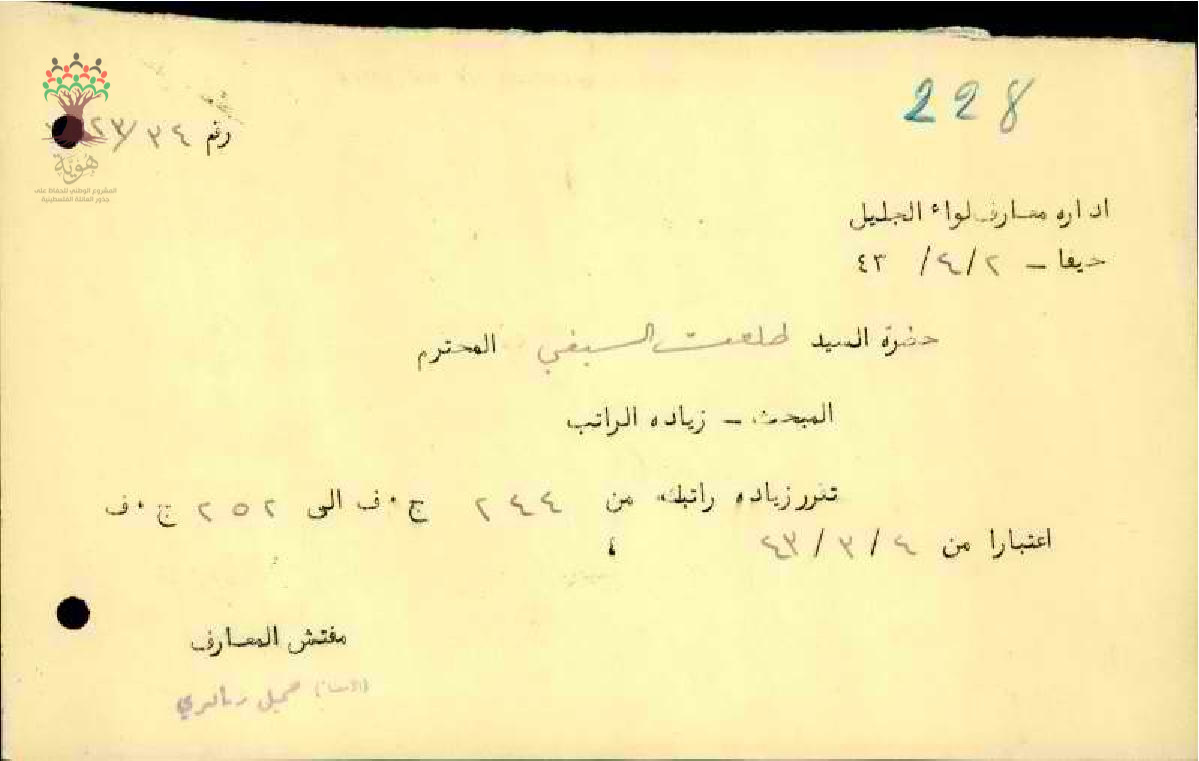 228
رقم ٣٤/٢٣
هوية
المشروع الوطني للحفاظ على
جذور العائلة الفلسطينية
اداره معارف لواء الجليل
حيفا – ٢/٤/ ٤٣
حضرة السيد طلعت السيفي المحترم
المبحث – زياده الراتب
تقرر زياده راتبك من ٢٤٤ ج٠ف الى ٢٥٢ ج٠ف
اعتبارا من ٤/٣/٤٣
مفتش المعارف
(الامضاء) جميل